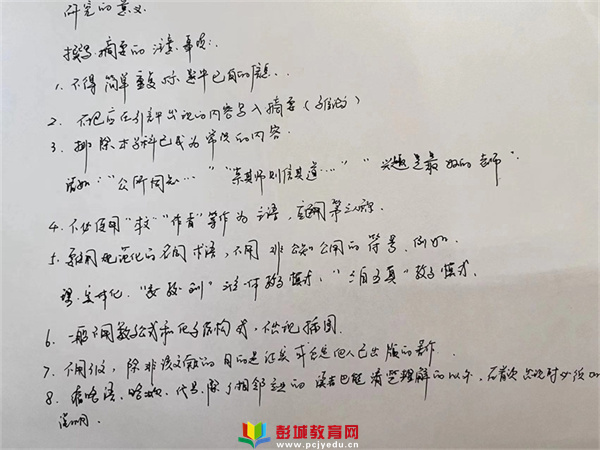 研究的意义
撰写摘要的注意事项:
1. 不得简单重复题中已有的信息..
2. 不把应在引言中出现的内容写入摘要
3. 排除本学科已成为常识的内容
诸如:"公所周知…" "亲其师则信其道…" "兴趣是最好的老师".
4. 不使用"本文""作者"等作为主语,要用第三人称
5. 要用规范化的名词术语,不用非公知公用的符号.例如
"教学模式,""教学模式.
6. 一般不用数学公式和化学结构式,不出现插图.
7. 不用引文,除非该文献的目的是证实或否定他人已出版的著作
8. 缩略语、略称、代号,除了相邻专业的读者也能清楚理解的以外,在首次出现时必须加
说明.
彭城教育网
www.pcjyedu.cn